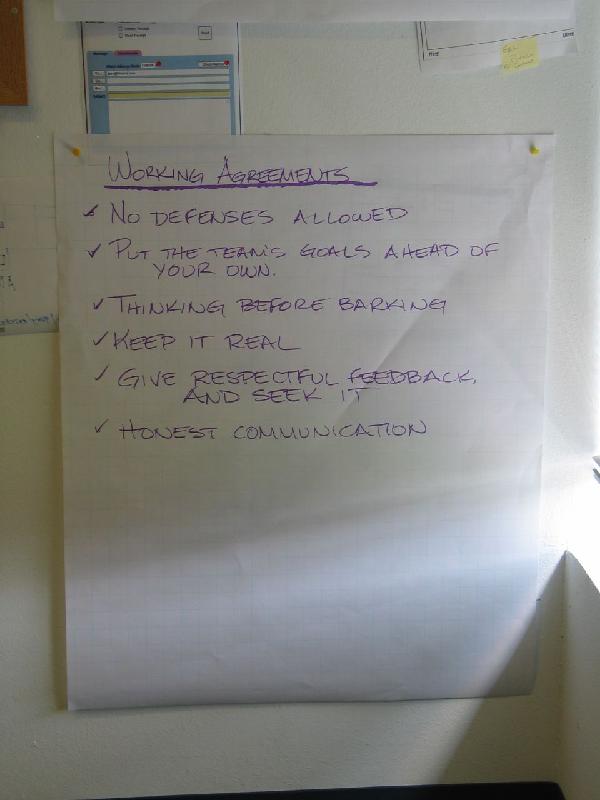 WORKING AGREEMENTS
✓ NO DEFENSES ALLOWED
✓ PUT THE TEAM'S GOALS AHEAD OF
YOUR OWN.
✓ THINKING BEFORE BARKING
✓ KEEP IT REAL
✓ GIVE RESPECTFUL FEEDBACK,
AND SEEK IT
✓ HONEST COMMUNICATION